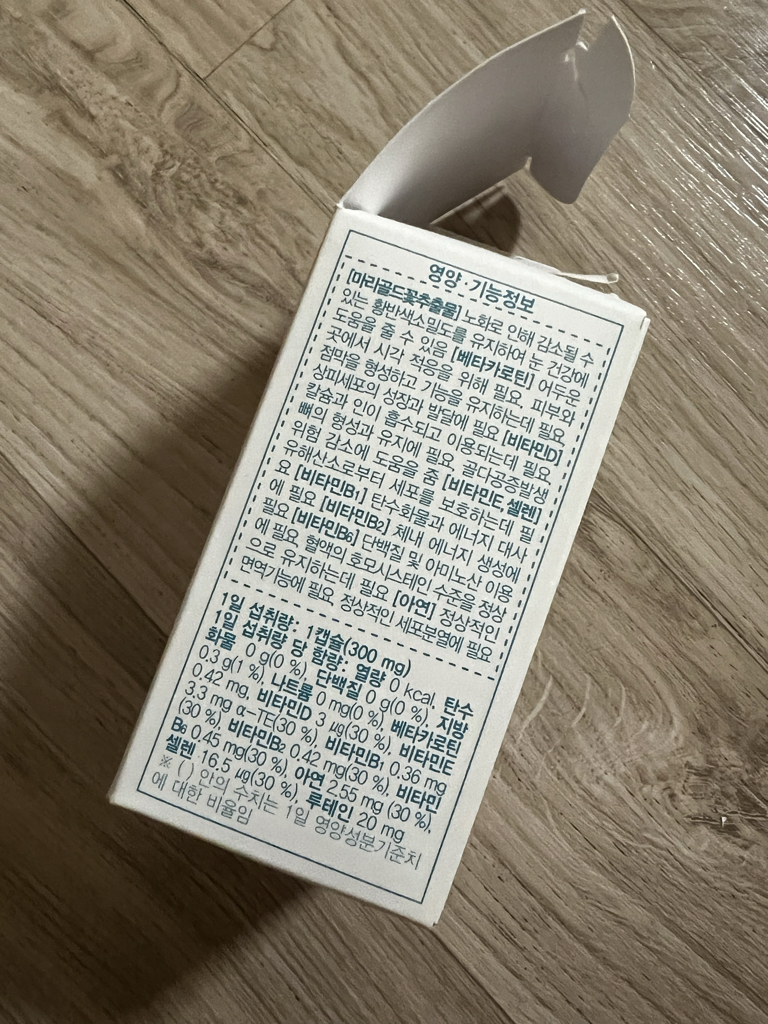 영양·기능정보
[마리골드꽃추출물] 노화로 인해 감소될 수
있는 황반색소밀도를 유지하여 눈 건강에
도움을 줄 수 있음 [베타카로틴] 어두운
곳에서 시각 적응을 위해 필요. 피부와
점막을 형성하고 기능을 유지하는데 필요.
상피세포의 성장과 발달에 필요 [비타민D]
칼슘과 인이 흡수되고 이용되는데 필요.
뼈의 형성과 유지에 필요. 골다공증발생
위험 감소에 도움을 줌 [비타민E, 셀렌]
유해산소로부터 세포를 보호하는데 필
요 [비타민B₁] 탄수화물과 에너지 대사
에 필요 [비타민B₂] 체내 에너지 생성에
필요 [비타민B₆] 단백질 및 아미노산 이용
에 필요. 혈액의 호모시스테인 수준을 정상
으로 유지하는데 필요 [아연] 정상적인
면역기능에 필요. 정상적인 세포분열에 필요
1일 섭취량: 1캡슐(300 mg)
1일 섭취량 당 함량: 열량 0 kcal, 탄수
화물 0 g(0 %), 단백질 0 g(0 %), 지방
0.3 g(1 %), 나트륨 0 mg(0 %), 베타카로틴
0.42 mg, 비타민D 3 µg(30 %), 비타민E
3.3 mg α-TE(30 %), 비타민B₁ 0.36 mg
(30 %), 비타민B₂ 0.42 mg(30 %), 비타민
B₆ 0.45 mg(30 %), 아연 2.55 mg (30 %),
셀렌 16.5 µg(30 %), 루테인 20 mg
※ ( ) 안의 수치는 1일 영양성분기준치
에 대한 비율임